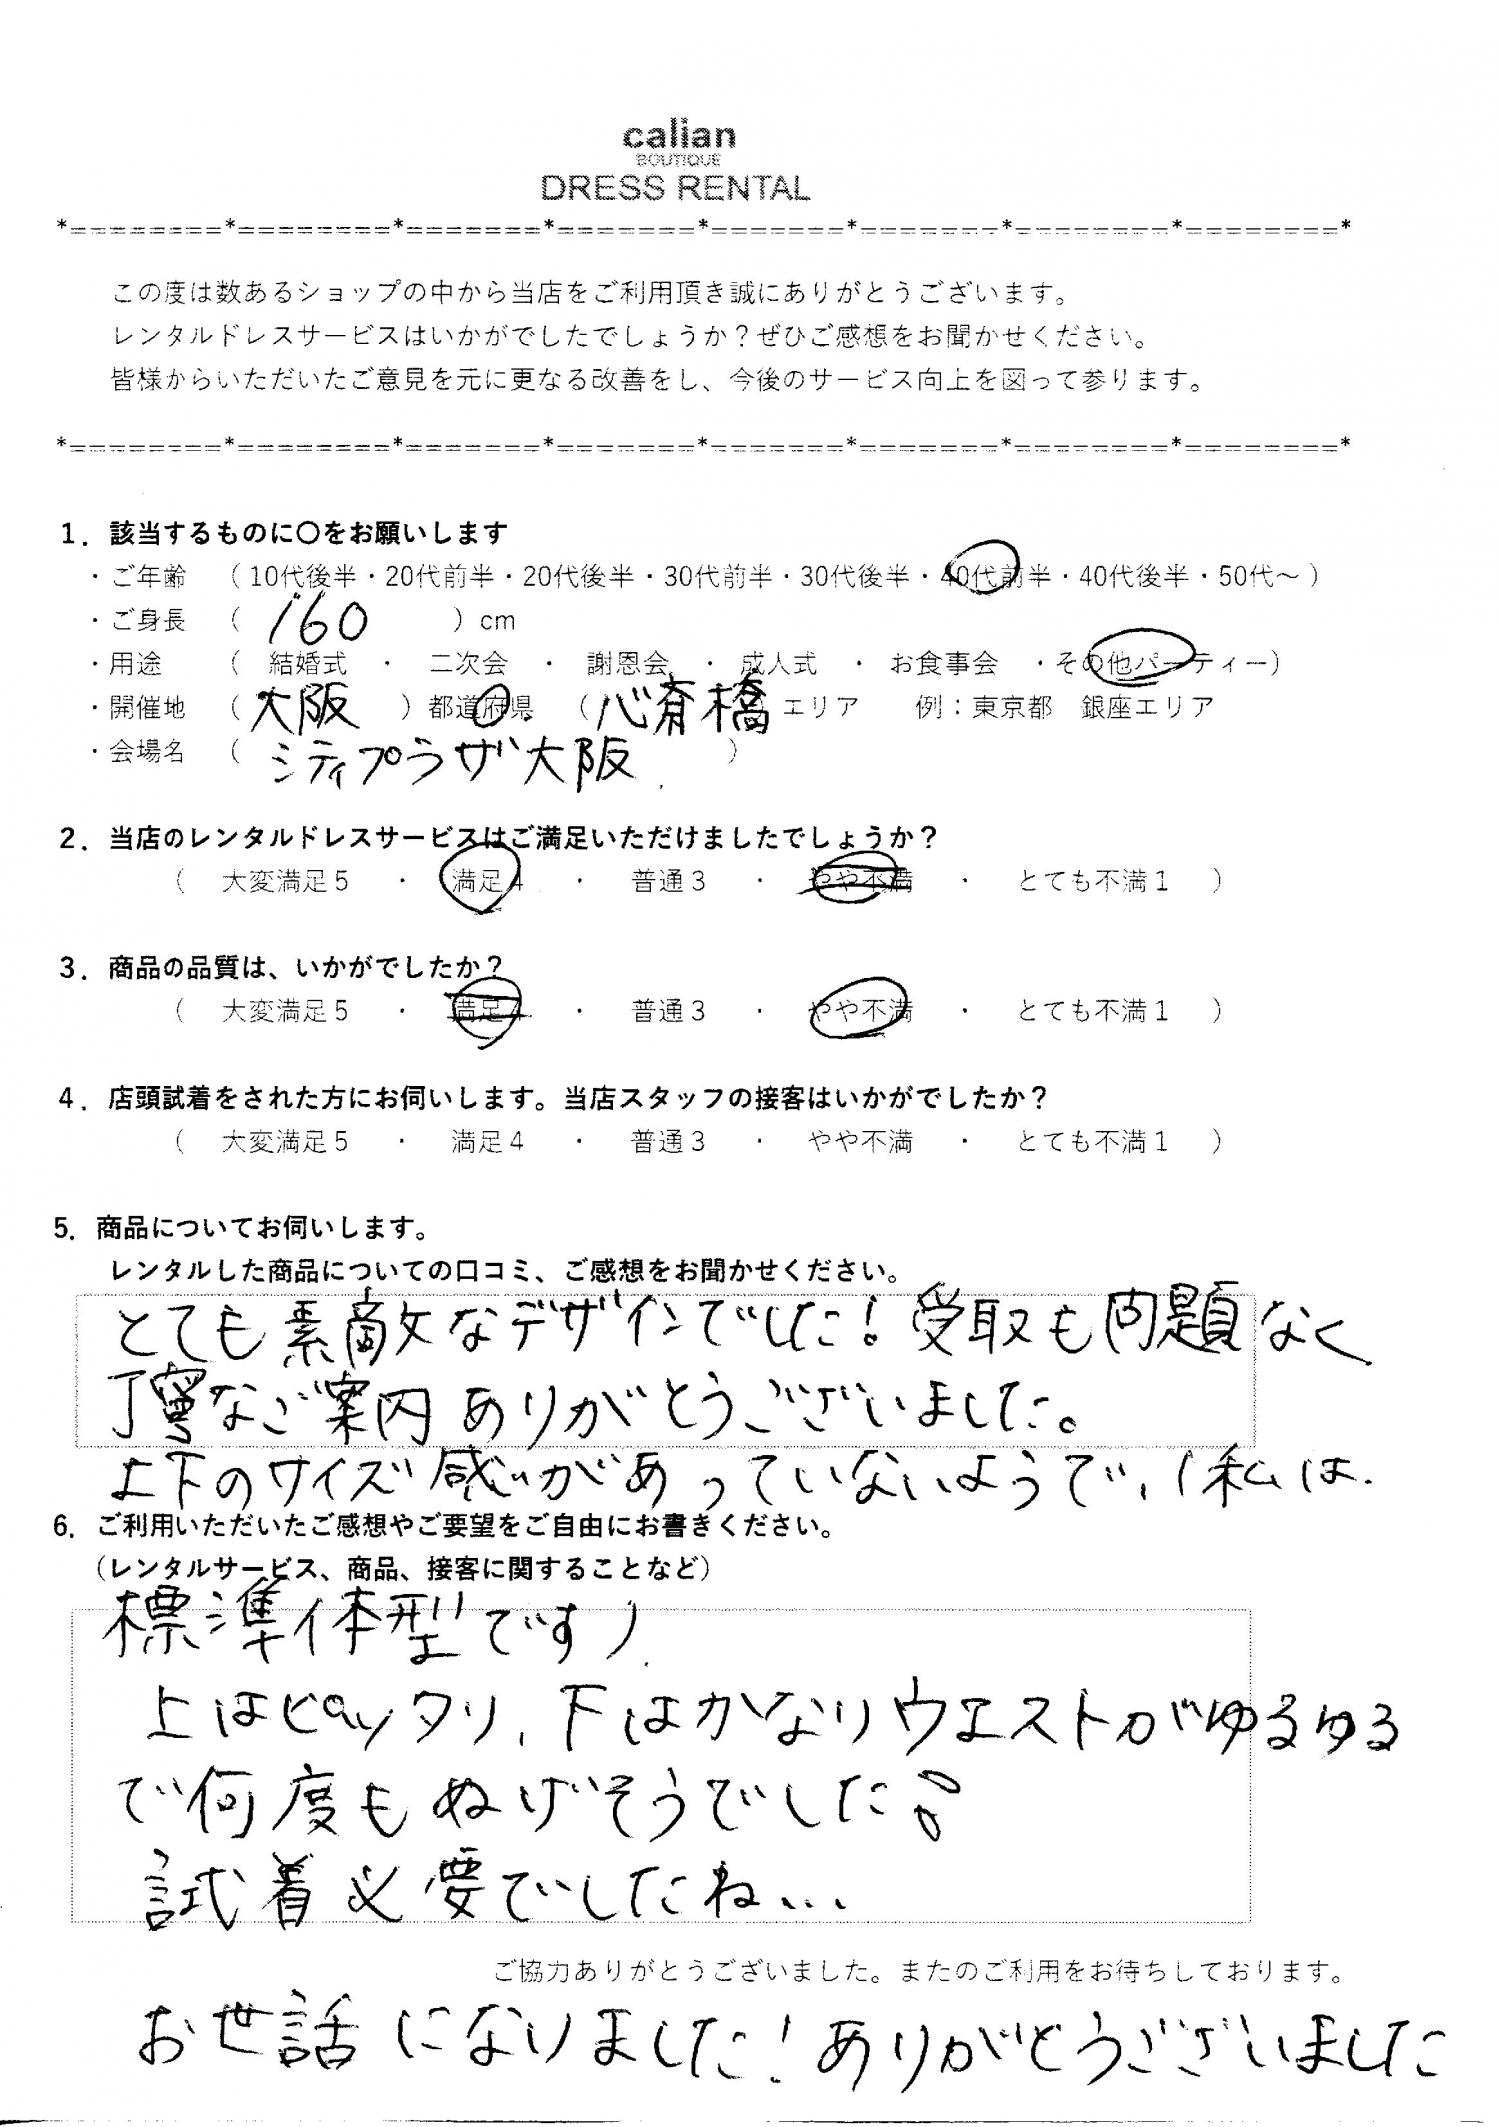 calian
BOUTIQUE
DRESS RENTAL
*========*========*=======*=======*=======*=======*========*========*
この度は数あるショップの中から当店をご利用頂き誠にありがとうございます。
レンタルドレスサービスはいかがでしたでしょうか？ぜひご感想をお聞かせください。
皆様からいただいたご意見を元に更なる改善をし、今後のサービス向上を図って参ります。
*========*========*=======*=======*=======*=======*========*========*
1．該当するものに〇をお願いします
・ご年齢　（10代後半・20代前半・20代後半・30代前半・30代後半・40代前半・40代後半・50代～）
・ご身長　（ 160 ）cm
・用途　（ 結婚式 ・ 二次会 ・ 謝恩会 ・ 成人式 ・ お食事会 ・その他パーティー）
・開催地　（ 大阪 ）都道府県　（心斎橋 エリア　例：東京都　銀座エリア
・会場名　（ シティプラザ大阪 ）
2．当店のレンタルドレスサービスはご満足いただけましたでしょうか？
（ 大変満足5 ・ 満足4 ・ 普通3 ・ やや不満 ・ とても不満1 ）
3．商品の品質は、いかがでしたか？
（ 大変満足5 ・ 満足4 ・ 普通3 ・ やや不満 ・ とても不満1 ）
4．店頭試着をされた方にお伺いします。当店スタッフの接客はいかがでしたか？
（ 大変満足5 ・ 満足4 ・ 普通3 ・ やや不満 ・ とても不満1 ）
5．商品についてお伺いします。
レンタルした商品についての口コミ、ご感想をお聞かせください。
とても素敵なデザインでした！受取も問題なく
丁寧なご案内ありがとうございました。
上下のサイズ感があっていないようで、（私は
6．ご利用いただいたご感想やご要望をご自由にお書きください。
（レンタルサービス、商品、接客に関することなど）
標準体型です）
上はピッタリ、下はかなりウエストがゆるゆる
で何度もぬげそうでした
試着必要でしたね...
ご協力ありがとうございました。またのご利用をお待ちしております。
お世話になりました！ありがとうございました